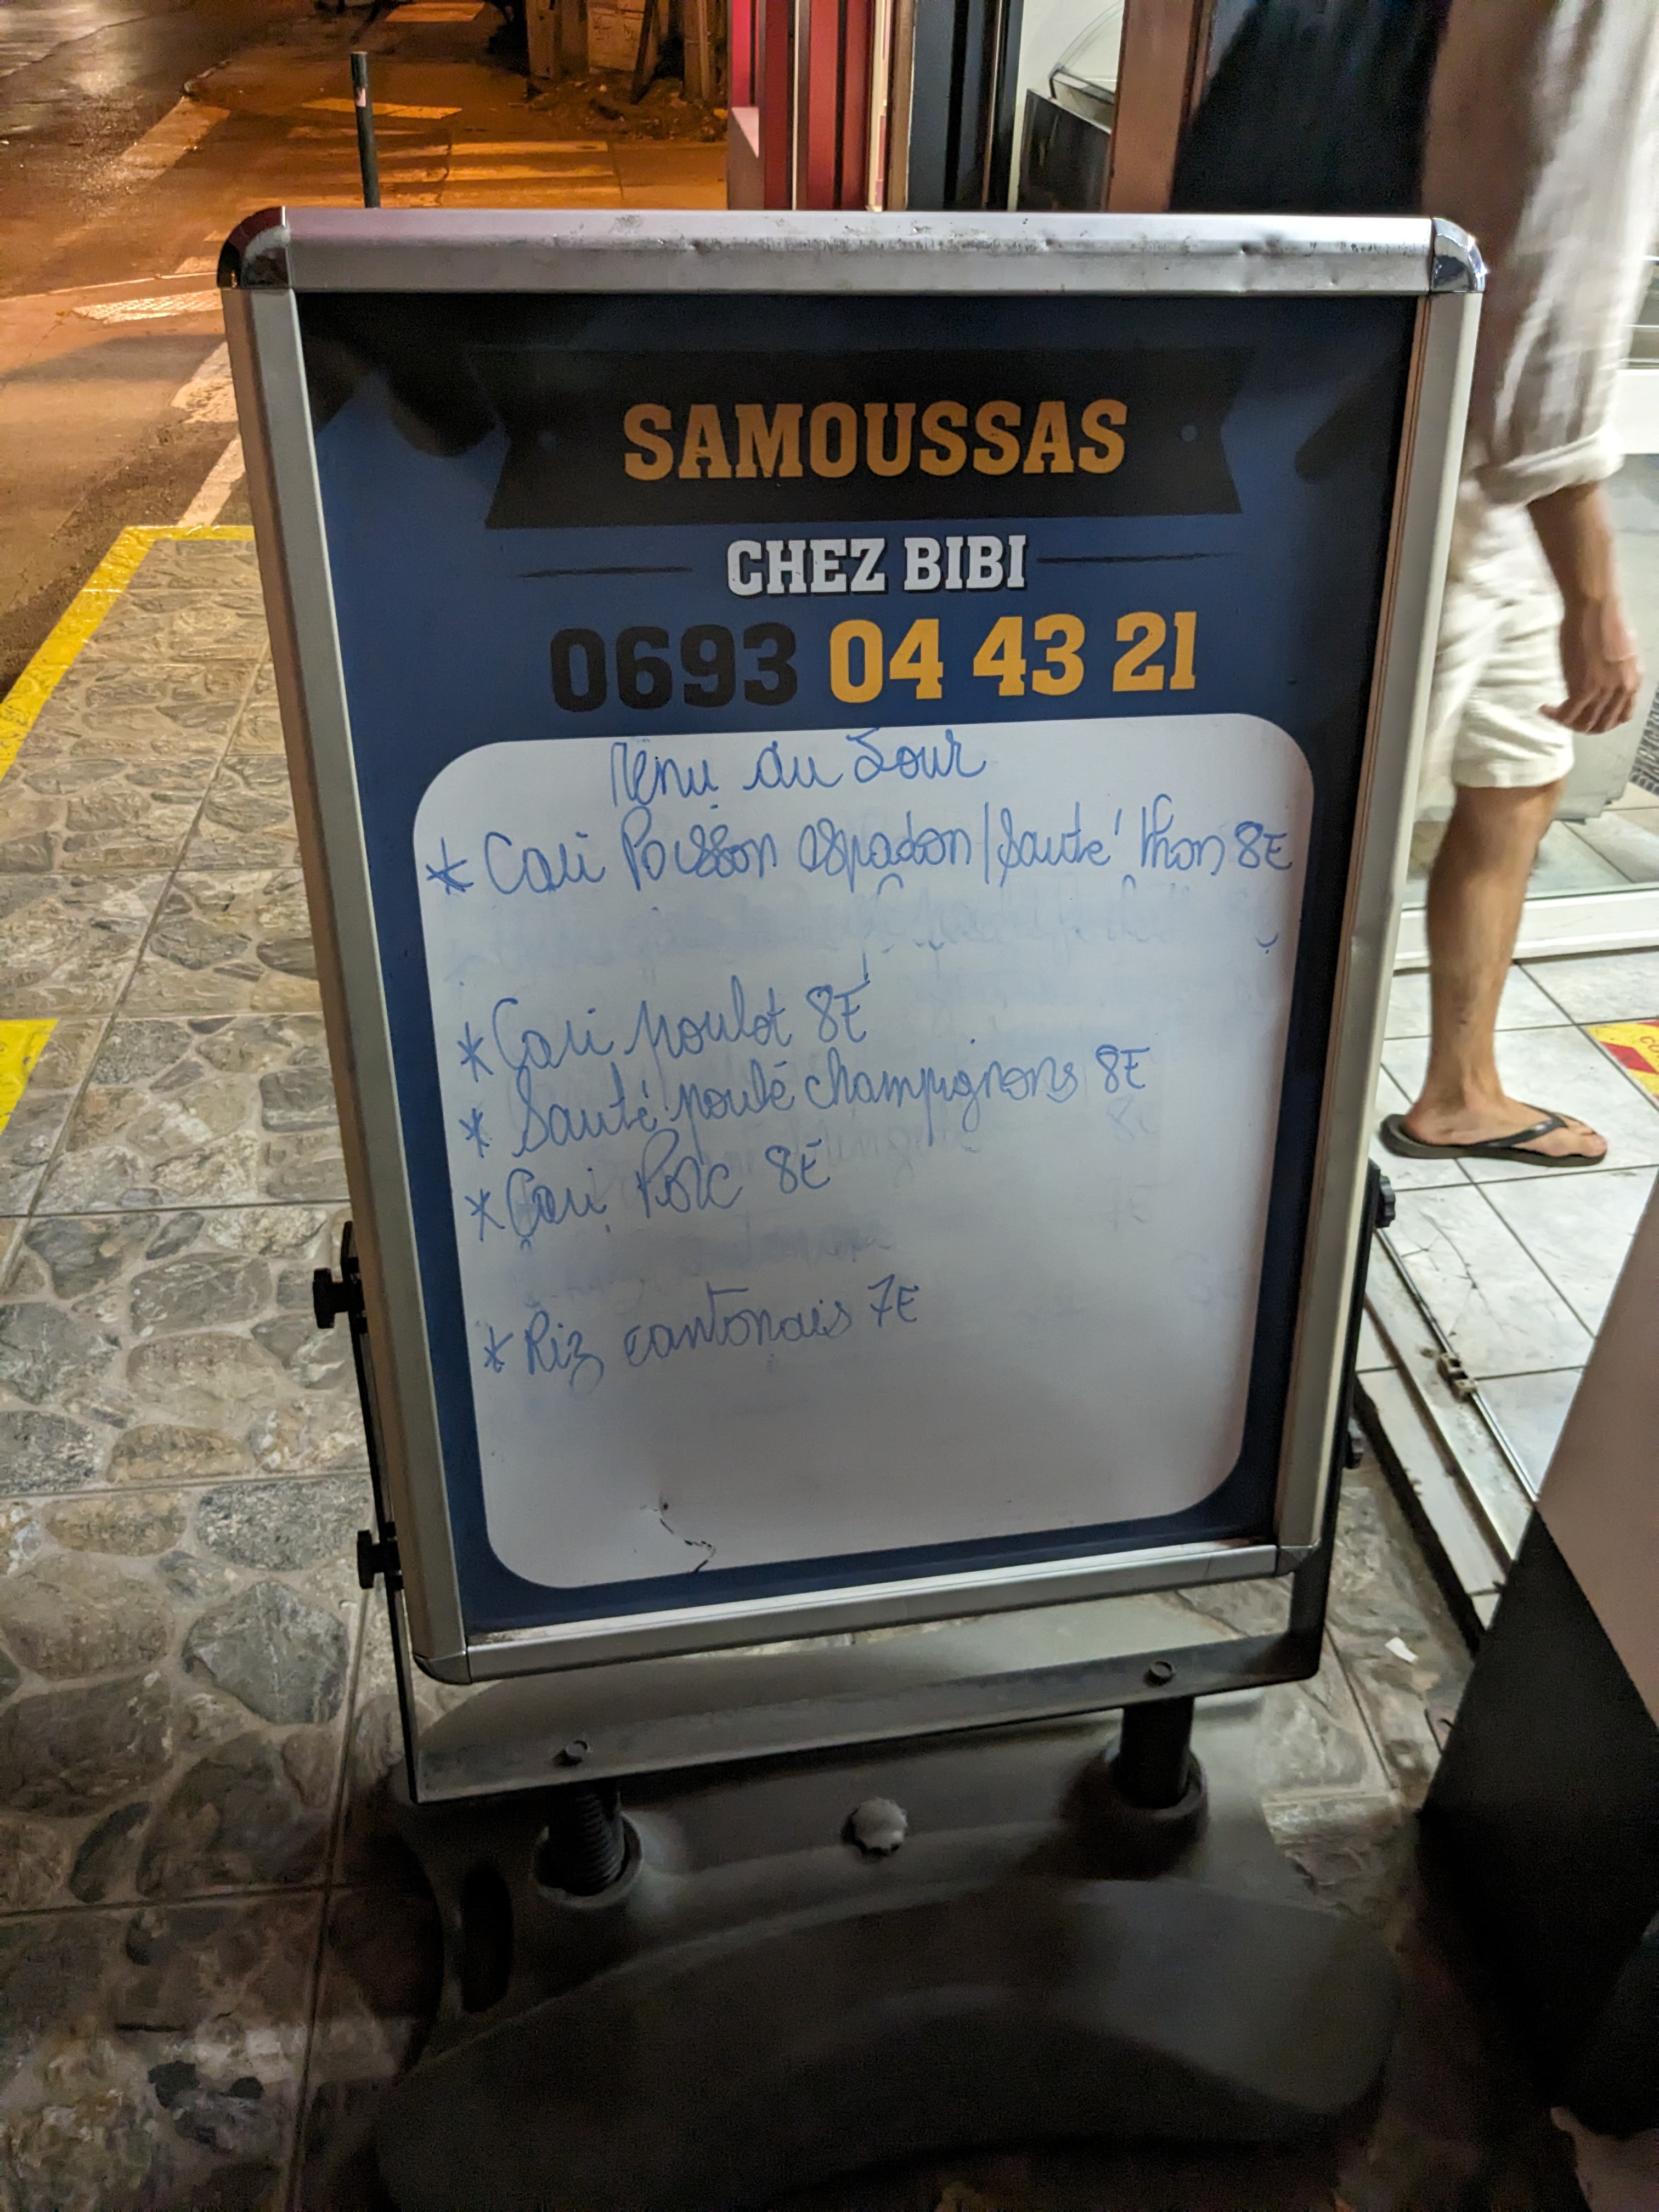 SAMOUSSAS
CHEZ BIBI
0693 04 43 21
Menu du Jour
* Cari Poisson espadon / Sauté thon 8E
* Cari poulet 8E
* Sauté poulé champignons 8E
* Cari Porc 8E
* Riz cantonais 7E